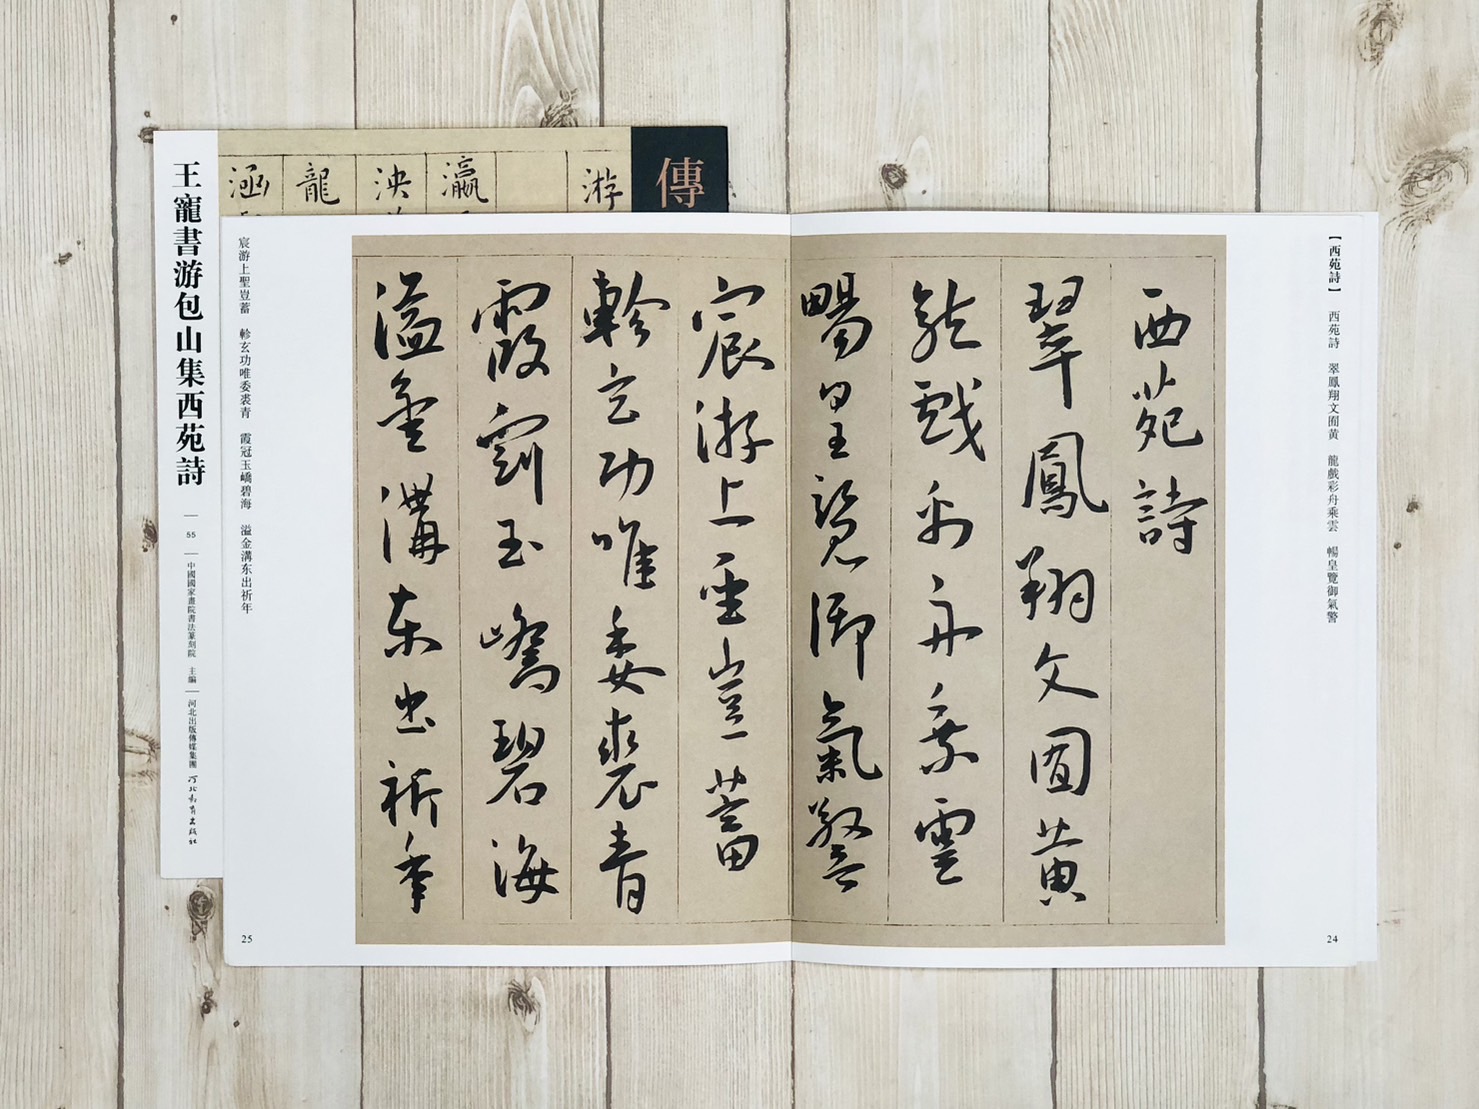 傳
游
瀛
泱
龍
涵
王寵書游包山集西苑詩
55
中國國家畫院書法篆刻院 主編
河北出版傳媒集團
河北教育出版社
【西苑詩】 西苑詩 翠鳳翔文囿黄 龍戲彩舟乘雲 暢皇覽御氣警
24
西苑詩
翠鳳翔文囿黄
龍戲彩舟乘雲
暢皇覽御氣警
宸游上聖豈蓄
軫玄功唯委裘青
霞冠玉嶠碧海
溢金溝东出祈年
宸游上聖豈蓄 軫玄功唯委裘青 霞冠玉嶠碧海 溢金溝东出祈年
25